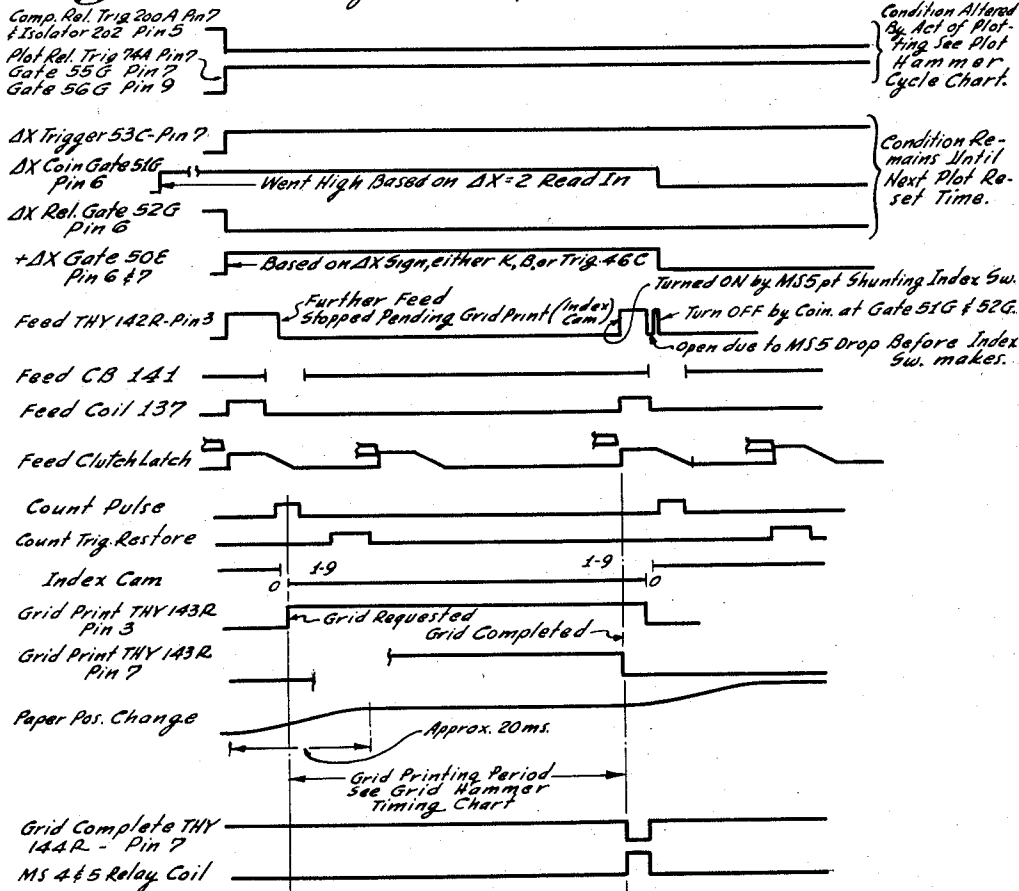 Comp. Rel. Trig 200A Pin 7
& Isolator 202 Pin 5
Plot Rel. Trig 74A Pin 7
Gate 55G Pin 7
Gate 56G Pin 9
Condition Altered
By Act of Plot-
ting See Plot
Hammer
Cycle Chart.
ΔX Trigger 53C-Pin 7
ΔX Coin Gate 51G
Pin 6
Went High Based on ΔX=2 Read In
ΔX Rel. Gate 52G
Pin 6
Condition Re-
mains Until
Next Plot Re-
set Time.
+ΔX Gate 50E
Pin 6 & 7
Based on ΔX Sign, either K, B, or Trig. 46C
Turned ON by MS5 pt Shunting Index Sw.
Feed THY 142R-Pin 3
Further Feed
Stopped Pending Grid Print (Index
Cam)
Turn OFF by Coin. at Gate 51G & 52G.
Open due to MS5 Drop Before Index
Sw. makes.
Feed CB 141
Feed Coil 137
Feed Clutch Latch
Count Pulse
Count Trig. Restore
Index Cam
0 1-9 1-9 0
Grid Print THY 143R
Pin 3
Grid Requested
Grid Completed
Grid Print THY 143R
Pin 7
Paper Pos. Change
Approx. 20ms.
Grid Printing Period
See Grid Hammer
Timing Chart
Grid Complete THY
144R - Pin 7
MS 4 & 5 Relay Coil